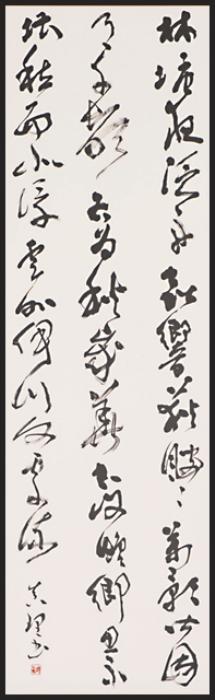 林塘夜泛舟虫響荻颼々萬影皆因
月千聲各為秋歲華空復晚鄉思不
堪愁西北浮雲外伊川何處流